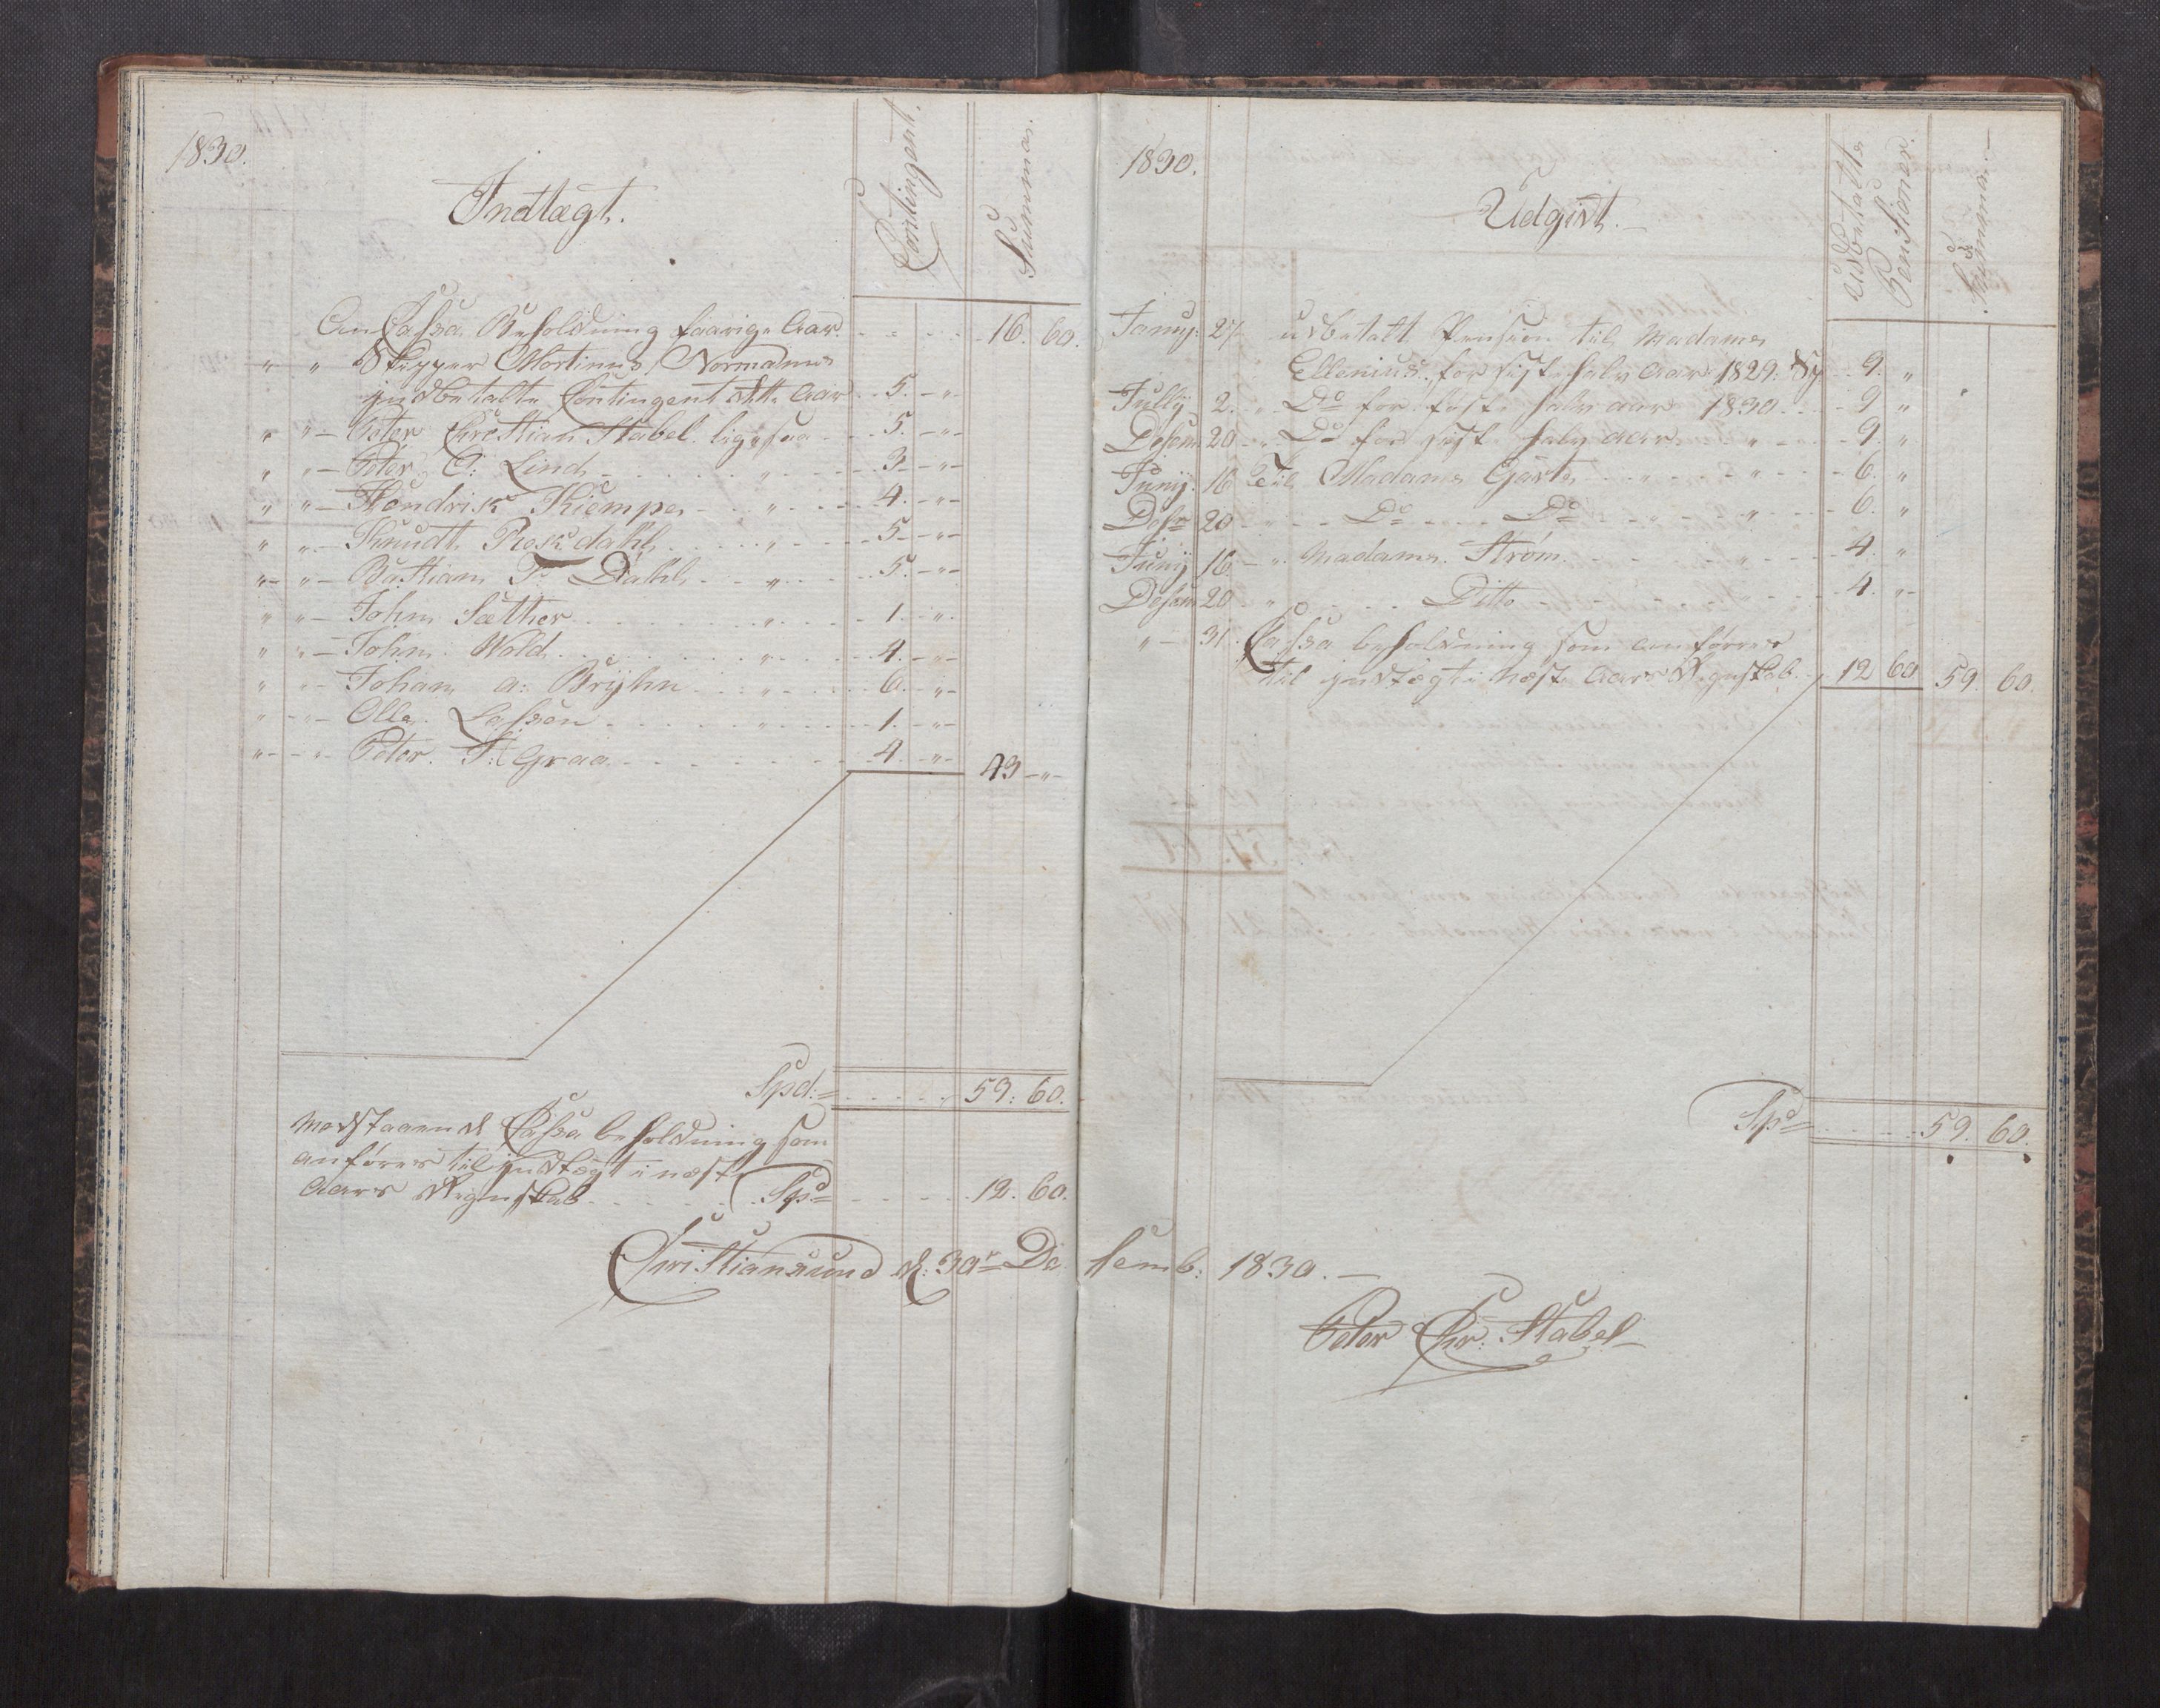 1830.
Indtægt.
Contingent.
Summa.
An Cassa Beholdning forrige Aar - - - - 16. 60.
" " Skipper Mortinus Normanns
indbetalte Contingent dette Aar - 5. - " -
" " - Peter Christian Stabel ligesaa - - - 5. - " -
" " - Peter O: Lind - - - " - - - 3 - " -
" " - Hendrik Kiempe - - - " - - - 4. - " -
" " - Knudt Roskdahl - - - " - - - 5 - " -
" - " - Bastian T: Dahl - - - " - - - 5. - " -
" " - John Sæther - - - " - - - 1. - " -
" " - John Wold - - - " - - - 4. - " -
" " - Johan A: Brijhn - - - " - - - 6. - " -
" - " - Olle Lassen - - - " - - - 1. - " -
" - - " Peter F: Graa - - - - - - 4. - " - 43 - " -
Spd: = - - - - 59: 60.
Modstaaende Cassa beholdning som
anføres til indtægt i næste
Aars Regenskab - - - - Spd= - - - - 12. 60.
Christiansund d: 30te Desemb: 1830. -
Peter Chr: Stabel
1830.
Udgivt. -
Udbetalte
Pensioner.
Summa. -
Januy: 27 udbetalt Pension til Madame
Ellenius, for sist halv Aar 1829. Sp 9. "
Jully 2. " Do for først halv aar 1830 - - - 9 "
Desem 20 - " Do for sist halv aar - - " - - - 9. "
Juny: 16 Til Madame Gørts - - " - - - " - - - 6. "
Desr 20 - " - - - Do - - - - Do - - " - - - " - - - 6. "
Juny 16 - " Madame Strøm - - - - " - - - 4. "
Desem 20 - " - - - - Ditto - - - - - - - 4. " -
" - 31. Cassa beholdning som anføres
til indtægt i næste Aars Regnskab - 12 60 59. 60.
Spd= - - - - 59. 60.